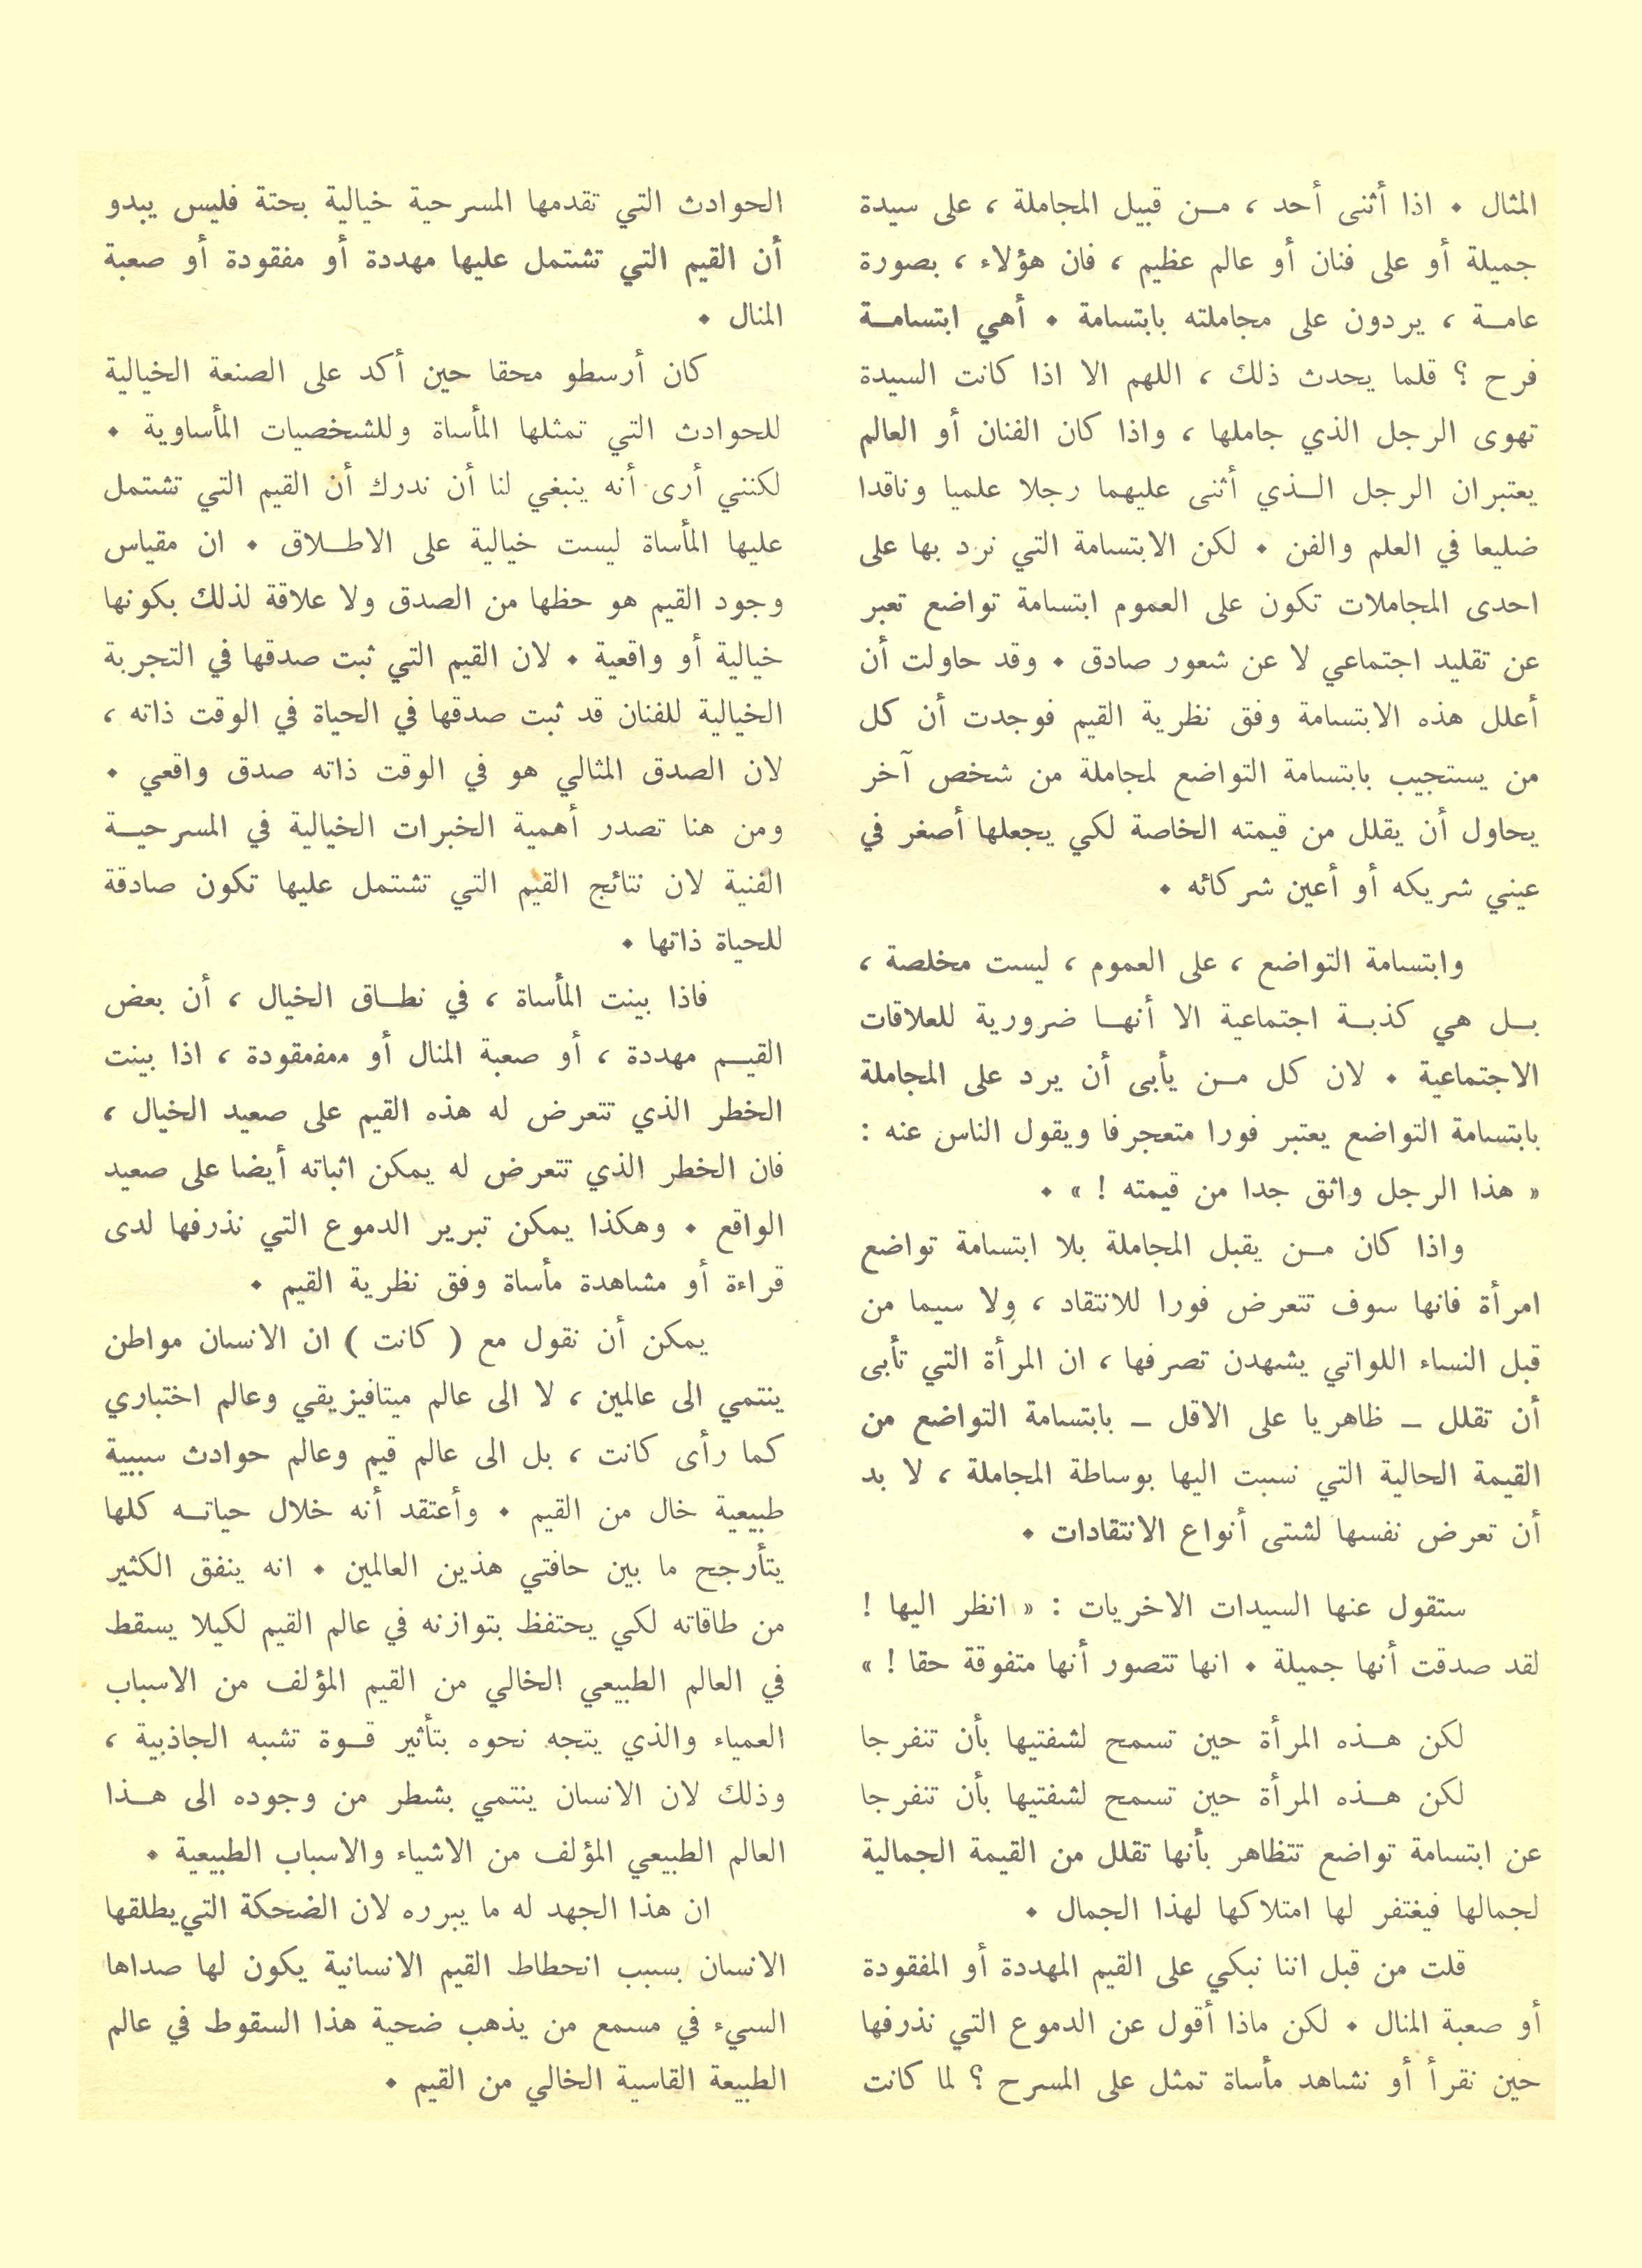 المثال . اذا أثنى أحد ، من قبيل المجاملة ، على سيدة
جميلة أو على فنان أو عالم عظيم ، فان هؤلاء ، بصورة
عامة ، يردون على مجاملته بابتسامة . أهي ابتسامة
فرح ؟ قلما يحدث ذلك ، اللهم الا اذا كانت السيدة
تهوى الرجل الذي جاملها ، واذا كان الفنان أو العالم
يعتبران الرجل الذي أثنى عليهما رجلا علميا وناقدا
ضليعا في العلم والفن . لكن الابتسامة التي نرد بها على
احدى المجاملات تكون على العموم ابتسامة تواضع تعبر
عن تقليد اجتماعي لا عن شعور صادق . وقد حاولت أن
أعلل هذه الابتسامة وفق نظرية القيم فوجدت أن كل
من يستجيب بابتسامة التواضع لمجاملة من شخص آخر
يحاول أن يقلل من قيمته الخاصة لكي يجعلها أصغر في
عيني شريكه أو أعين شركائه .
وابتسامة التواضع ، على العموم ، ليست مخلصة ،
بل هي كذبة اجتماعية الا أنها ضرورية للعلاقات
الاجتماعية . لان كل من يأبى أن يرد على المجاملة
بابتسامة التواضع يعتبر فورا متعجرفا ويقول الناس عنه :
« هذا الرجل واثق جدا من قيمته ! » .
واذا كان من يقبل المجاملة بلا ابتسامة تواضع
امرأة فانها سوف تتعرض فورا للانتقاد ، ولا سيما من
قبل النساء اللواتي يشهدن تصرفها ، ان المرأة التي تأبى
أن تقلل ـ ظاهريا على الاقل ـ بابتسامة التواضع من
القيمة الحالية التي نسبت اليها بوساطة المجاملة ، لا بد
أن تعرض نفسها لشتى أنواع الانتقادات .
ستقول عنها السيدات الاخريات : « انظر اليها !
لقد صدقت أنها جميلة . انها تتصور أنها متفوقة حقا ! »
لكن هذه المرأة حين تسمح لشفتيها بأن تنفرجا
لكن هذه المرأة حين تسمح لشفتيها بأن تنفرجا
عن ابتسامة تواضع تتظاهر بأنها تقلل من القيمة الجمالية
لجمالها فيغتفر لها امتلاكها لهذا الجمال .
قلت من قبل اننا نبكي على القيم المهددة أو المفقودة
أو صعبة المنال . لكن ماذا أقول عن الدموع التي نذرفها
حين نقرأ أو نشاهد مأساة تمثل على المسرح ؟ لما كانت
الحوادث التي تقدمها المسرحية خيالية بحتة فليس يبدو
أن القيم التي تشتمل عليها مهددة أو مفقودة أو صعبة
المنال .
كان أرسطو محقا حين أكد على الصنعة الخيالية
للحوادث التي تمثلها المأساة وللشخصيات المأساوية .
لكنني أرى أنه ينبغي لنا أن ندرك أن القيم التي تشتمل
عليها المأساة ليست خيالية على الاطلاق . ان مقياس
وجود القيم هو حظها من الصدق ولا علاقة لذلك بكونها
خيالية أو واقعية . لان القيم التي ثبت صدقها في التجربة
الخيالية للفنان قد ثبت صدقها في الحياة في الوقت ذاته ،
لان الصدق المثالي هو في الوقت ذاته صدق واقعي .
ومن هنا تصدر أهمية الخبرات الخيالية في المسرحية
الفنية لان نتائج القيم التي تشتمل عليها تكون صادقة
للحياة ذاتها .
فاذا بينت المأساة ، في نطاق الخيال ، أن بعض
القيم مهددة ، أو صعبة المنال أو ممفمقودة ، اذا بينت
الخطر الذي تتعرض له هذه القيم على صعيد الخيال ،
فان الخطر الذي تتعرض له يمكن اثباته أيضا على صعيد
الواقع . وهكذا يمكن تبرير الدموع التي نذرفها لدى
قراءة أو مشاهدة مأساة وفق نظرية القيم .
يمكن أن نقول مع ( كانت ) ان الانسان مواطن
ينتمي الى عالمين ، لا الى عالم ميتافيزيقي وعالم اختباري
كما رأى كانت ، بل الى عالم قيم وعالم حوادث سببية
طبيعية خال من القيم . وأعتقد أنه خلال حياته كلها
يتأرجح ما بين حافتي هذين العالمين . انه ينفق الكثير
من طاقاته لكي يحتفظ بتوازنه في عالم القيم لكيلا يسقط
في العالم الطبيعي الخالي من القيم المؤلف من الاسباب
العمياء والذي يتجه نحوه بتأثير قوة تشبه الجاذبية ،
وذلك لان الانسان ينتمي بشطر من وجوده الى هذا
العالم الطبيعي المؤلف من الاشياء والاسباب الطبيعية .
ان هذا الجهد له ما يبرره لان الضحكة التي يطلقها
الانسان بسبب انحطاط القيم الانسانية يكون لها صداها
السيء في مسمع من يذهب ضحية هذا السقوط في عالم
الطبيعة القاسية الخالي من القيم .